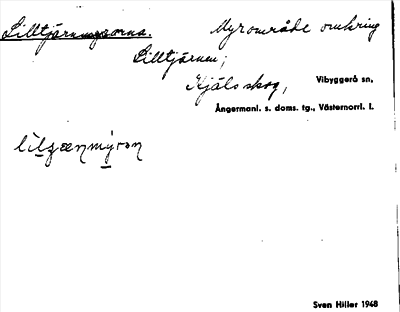 Lilltjärnmyrorna. Myrområde omkring
Lilltjärnen;
Kjälsskog, Vibyggerå sn,
Ångermanl. s. doms. tg., Västernorrl. l.
Sven Hiller 1948